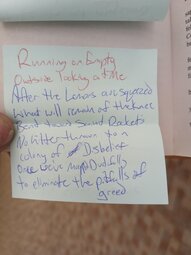 Running on Empty
Outside looking at Me
After the Lemons are squeezed
what will remain of the knee
Bent toward Sound Rockets
No litter thrown to a
colony of Disbelief
Once we've
to eliminate the pitfalls of
greed